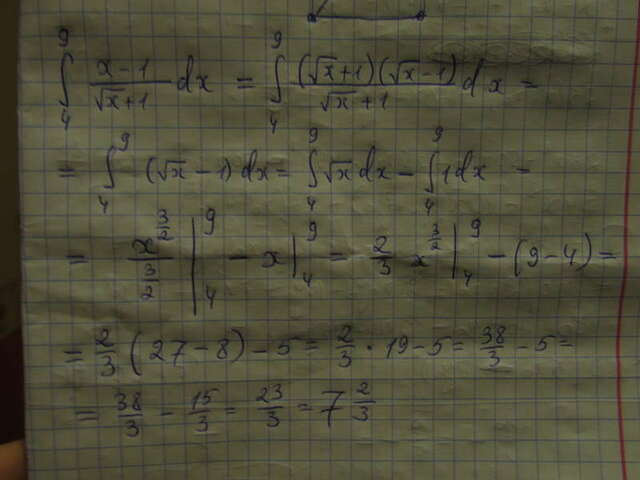 ∫₄⁹ (x-1)/(√x+1) dx = ∫₄⁹ ((√x+1)(√x-1))/(√x+1) dx =
= ∫₄⁹ (√x-1)dx = ∫₄⁹ √x dx - ∫₄⁹ 1dx =
= x^(3/2)/(3/2) |₄⁹ - x|₄⁹ = 2/3 x^(3/2) |₄⁹ - (9-4) =
= 2/3 (27-8) - 5 = 2/3 · 19 - 5 = 38/3 - 5 =
= 38/3 - 15/3 = 23/3 = 7 2/3